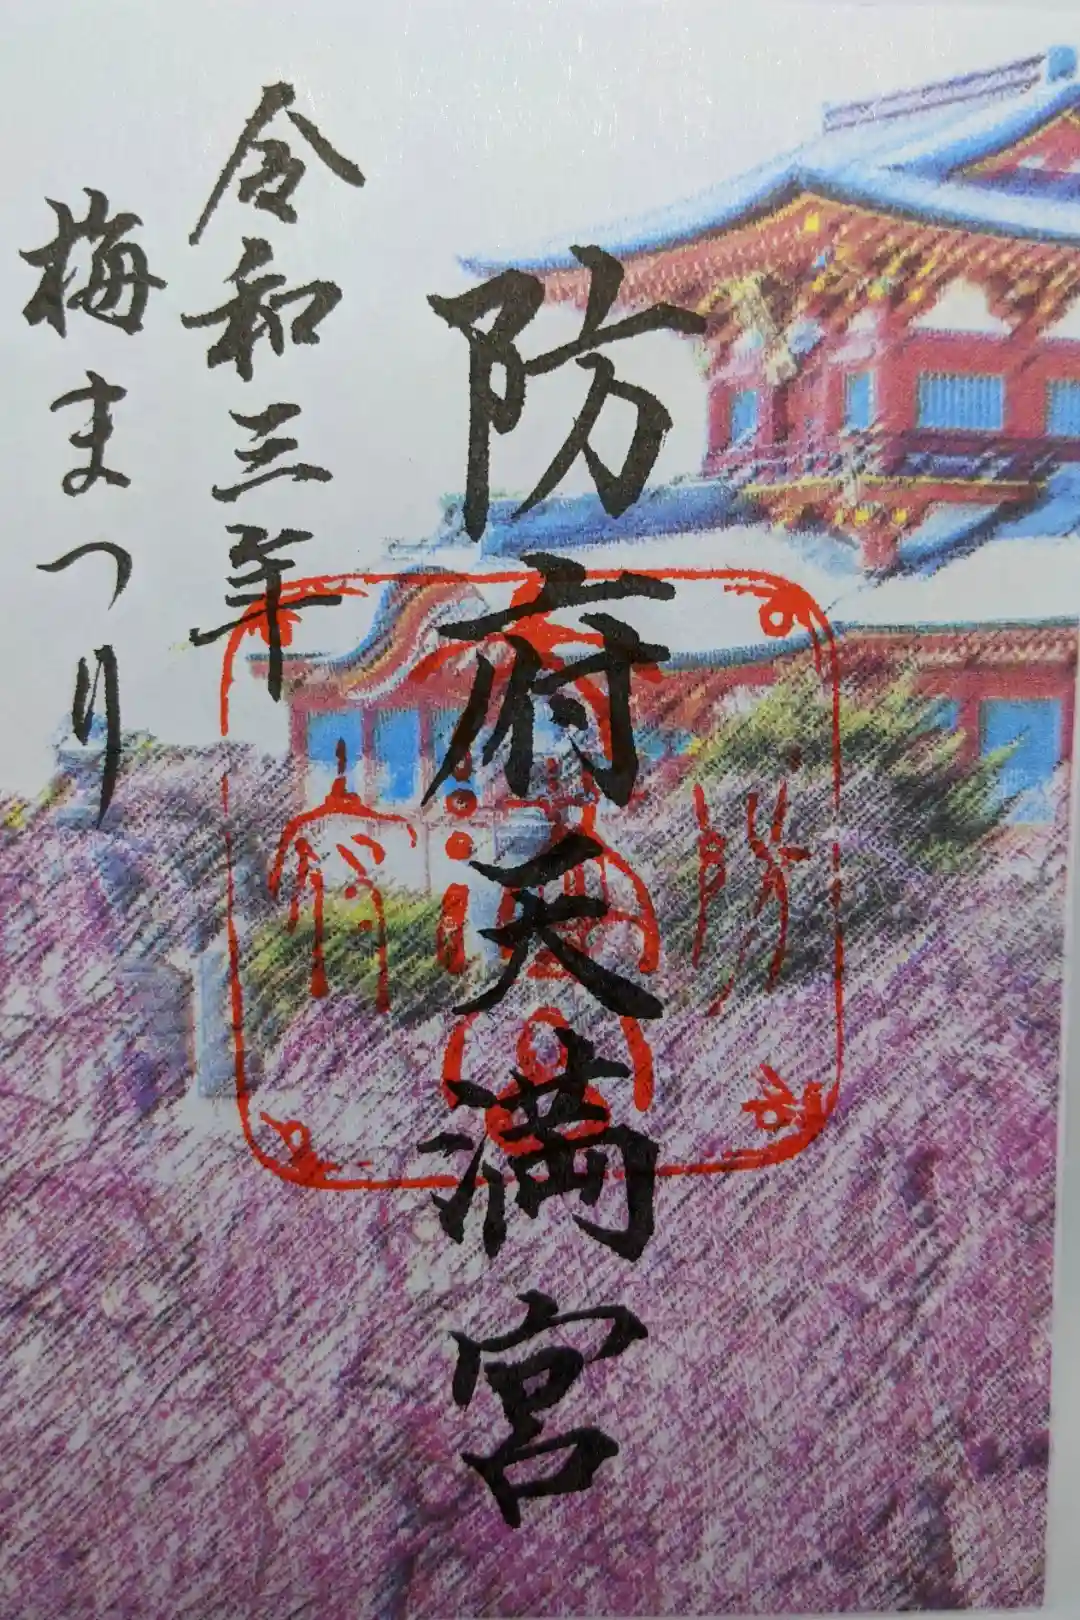 防府天満宮
令和三年
梅まつり